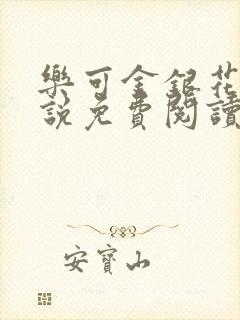 樂可金銀花
說免費閱讀
安寶山